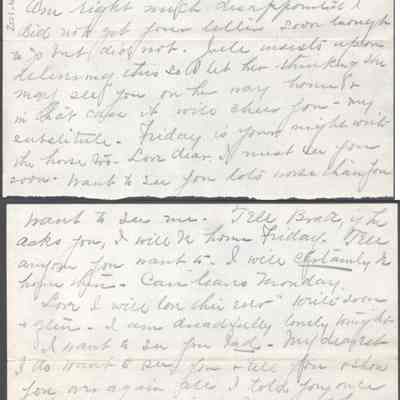 Am right much disappointed I
did not get your letter soon enough
to go but did not. insists upon
delivering this so I let her thinking she
may see you on her way home &
in that case it will cheer you - my
substitute. Friday is your night with
the horse too. Love dear, I must see you
soon. Want to see you lots worse than you
want to see me. Tell if he
asks you, I will be home Friday. Tell
anyone you want to. I will certainly be
home then. leaves Monday.
Love I will love this ever. Write soon
& often. I am dreadfully lonely tonight.
I want to see you bad. My dearest
I do want to see you & tell you & show
you over again all I told you once